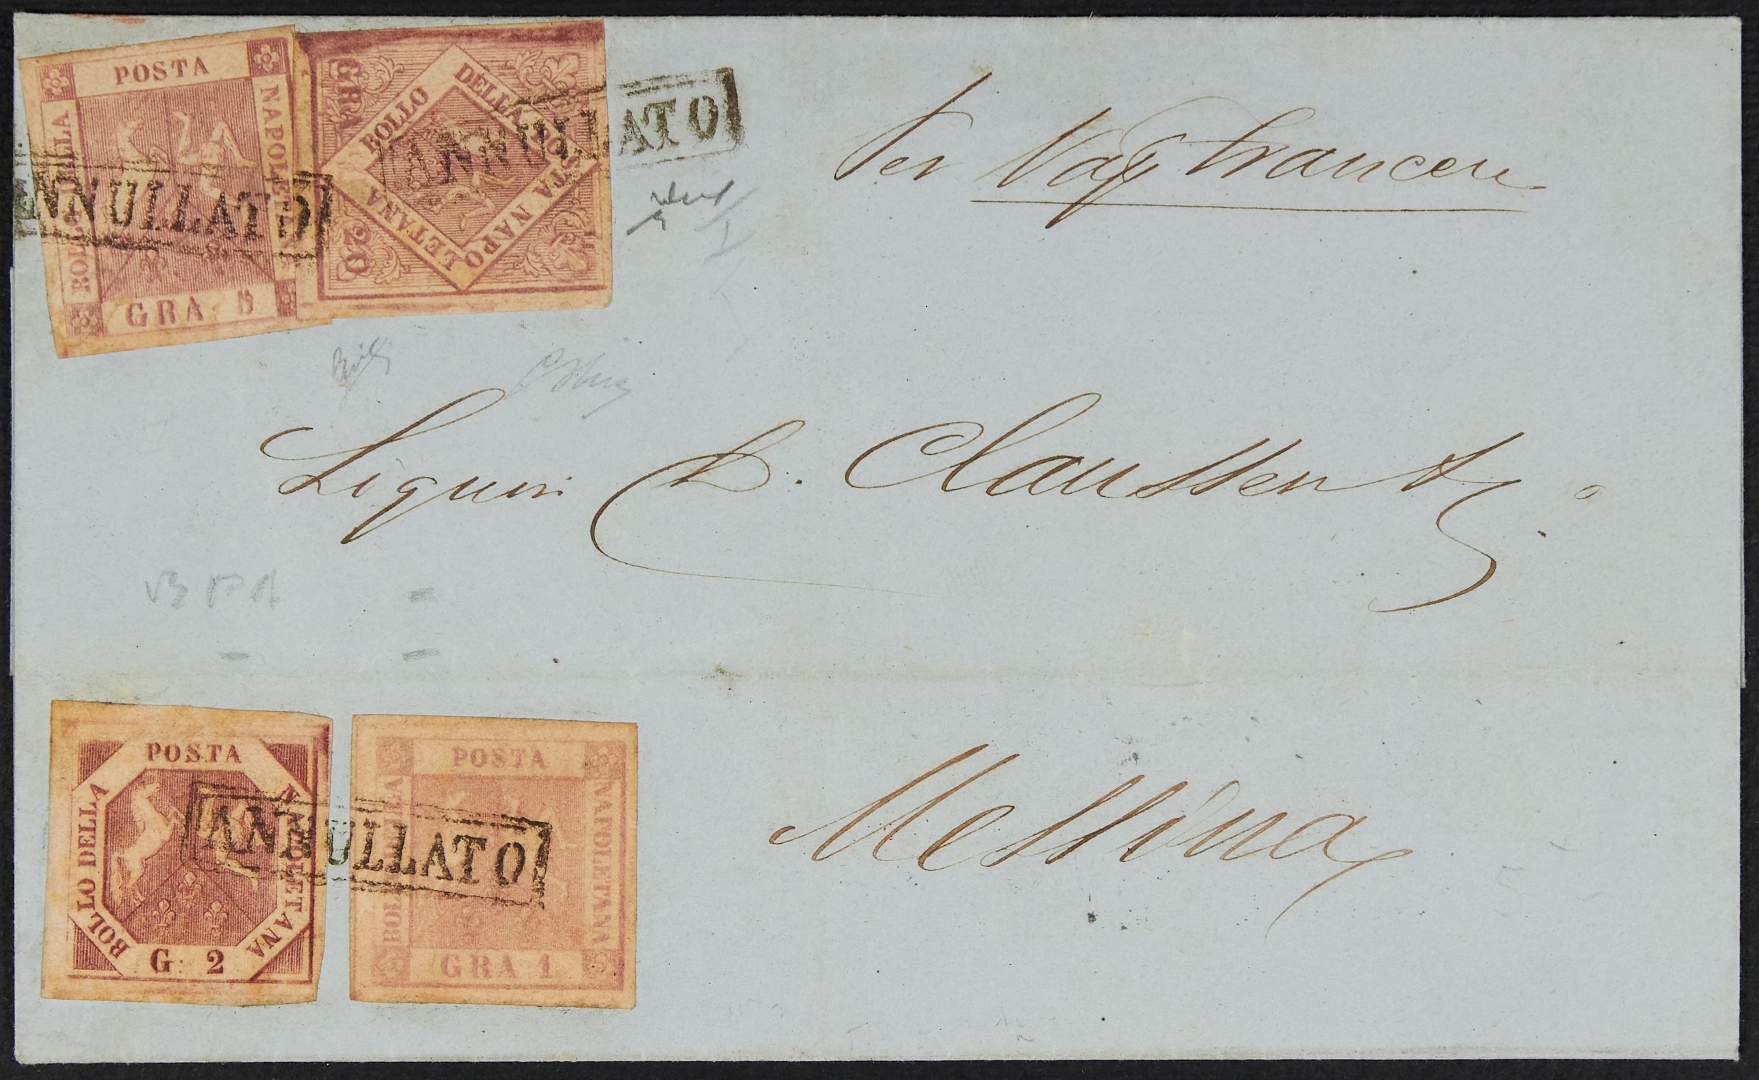 POSTA
BOLLO DELLA
NAPOLETANA
GRA 5
ANNULLATO
GRA
BOLLO DELLA POSTA NAPOLETANA
20
ANNULLATO
Per Vap francese
Signori D. Claussen & Co
Messina
POSTA
BOLLO DELLA
NAPOLETANA
G. 2
ANNULLATO
POSTA
BOLLO DELLA
NAPOLETANA
GRA 1